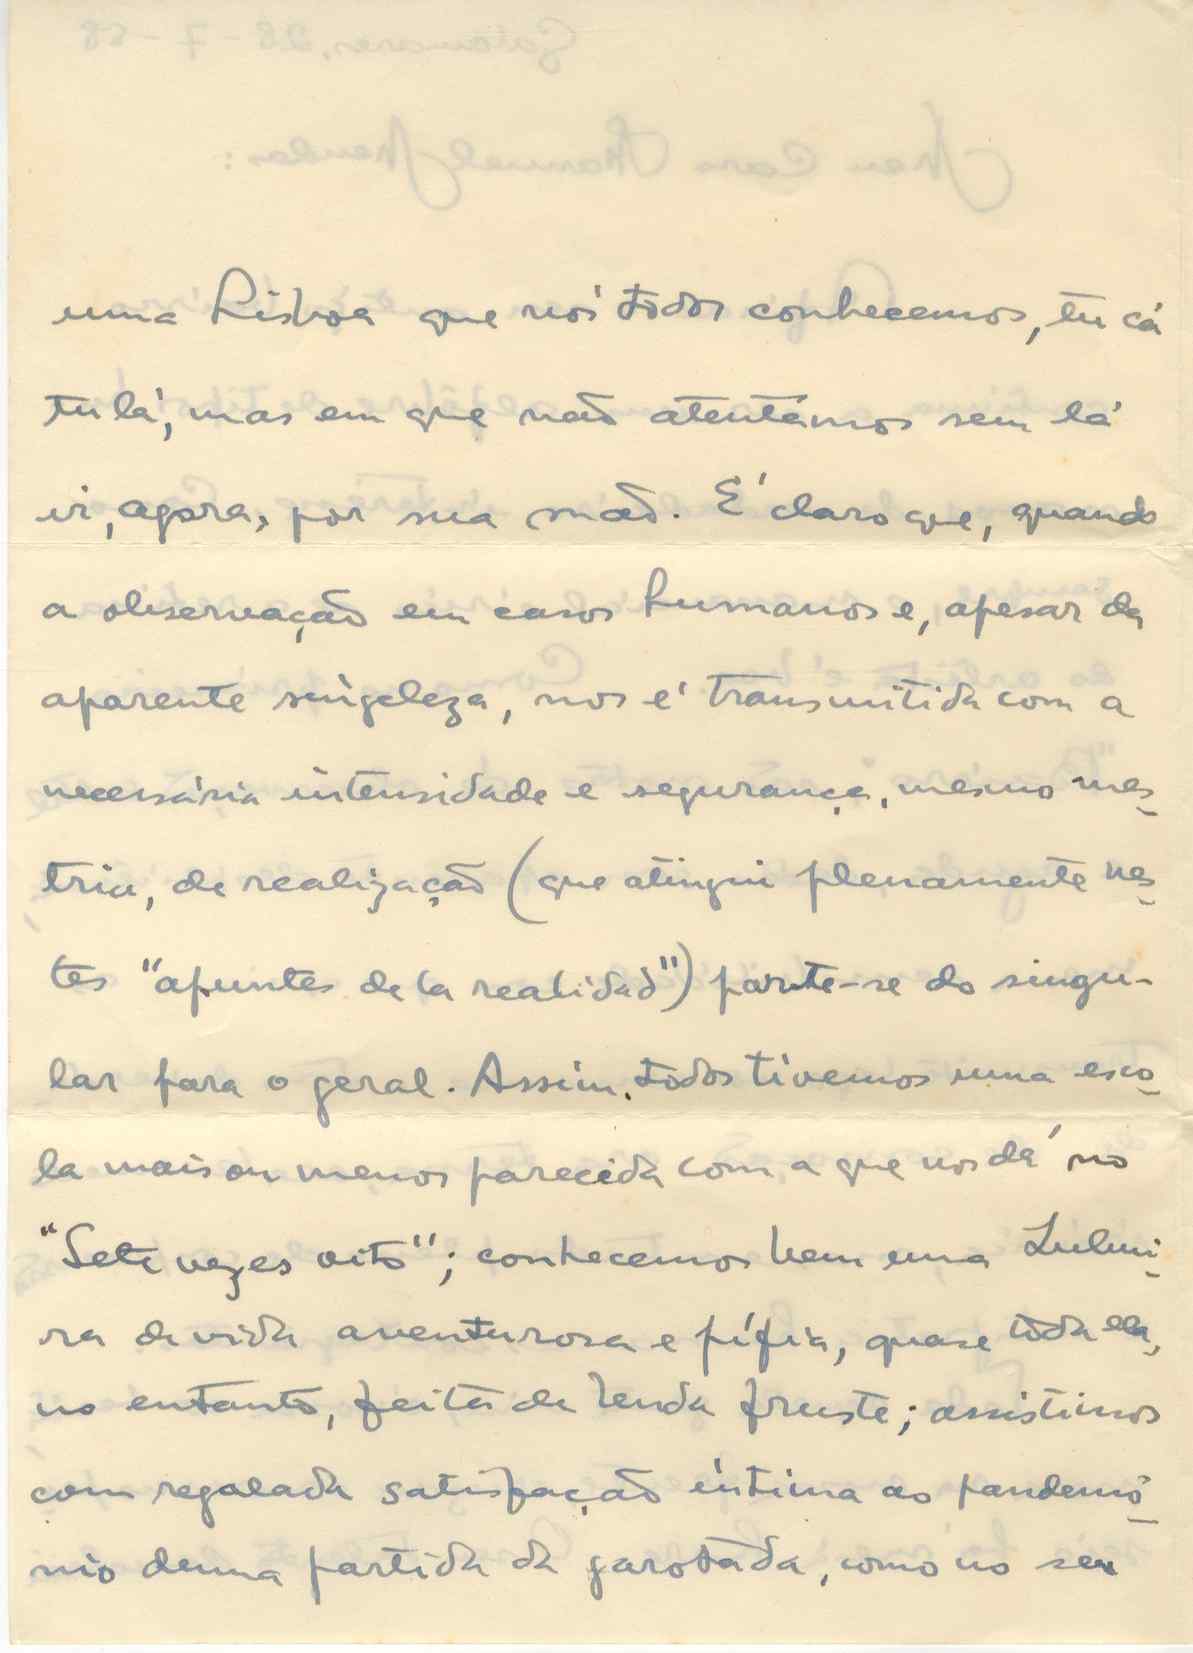 uma Lisboa que nós todos conhecemos, tu cá
tu lá, mas em que não atentámos sem lá
ir, agora, por sua mão. É claro que, quando
a observação em casos humanos e, apesar da
aparente singeleza, nos é transmitida com a
necessária intensidade e segurança, mesmo mes-
tria, de realização (que atingiu plenamente nes-
tes "apuntes de la realidad") parte-se do singu-
lar para o geral. Assim, todos tivemos uma esco-
la mais ou menos parecida com a que nos dá no
"Sete vezes oito"; conhecemos bem uma
ra de vida aventurosa e pífia, quase toda ela,
no entanto, feita de lenda fruste; assistimos
com regalada satisfação íntima ao pandemó-
nio duma partida da garotada, como no seu